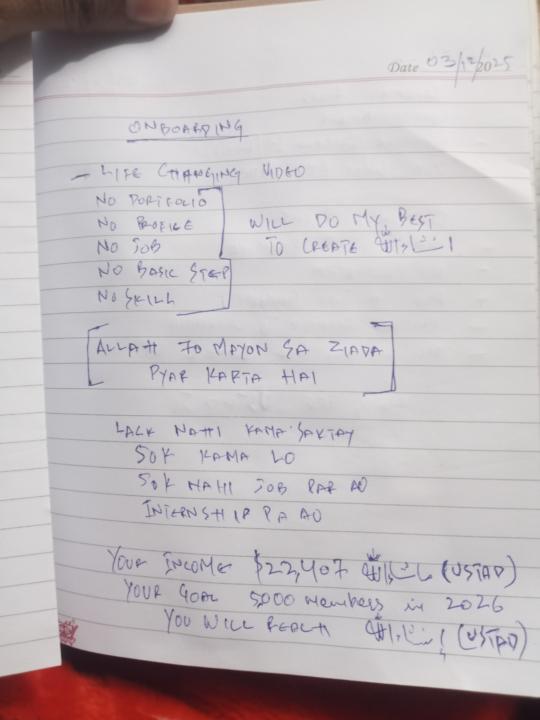 Date 03/12/2025
ONBOARDING
- LIFE CHANGING VIDEO
NO PORTFOLIO
NO PROFILE
NO JOB
NO BASIC STEP
NO SKILL
WILL DO MY BEST
TO CREATE انشاءاللہ
ALLAH 70 MAYON SA ZIADA
PYAR KARTA HAI
LACK NAHI KAMA SAKTAY
50K KAMA LO
50K NAHI JOB PAR AO
INTERNSHIP PA AO
YOUR INCOME $22,407 ماشاءاللہ (USTAD)
YOUR GOAL 5000 members in 2026
YOU WILL REACH انشاءاللہ (USTAD)